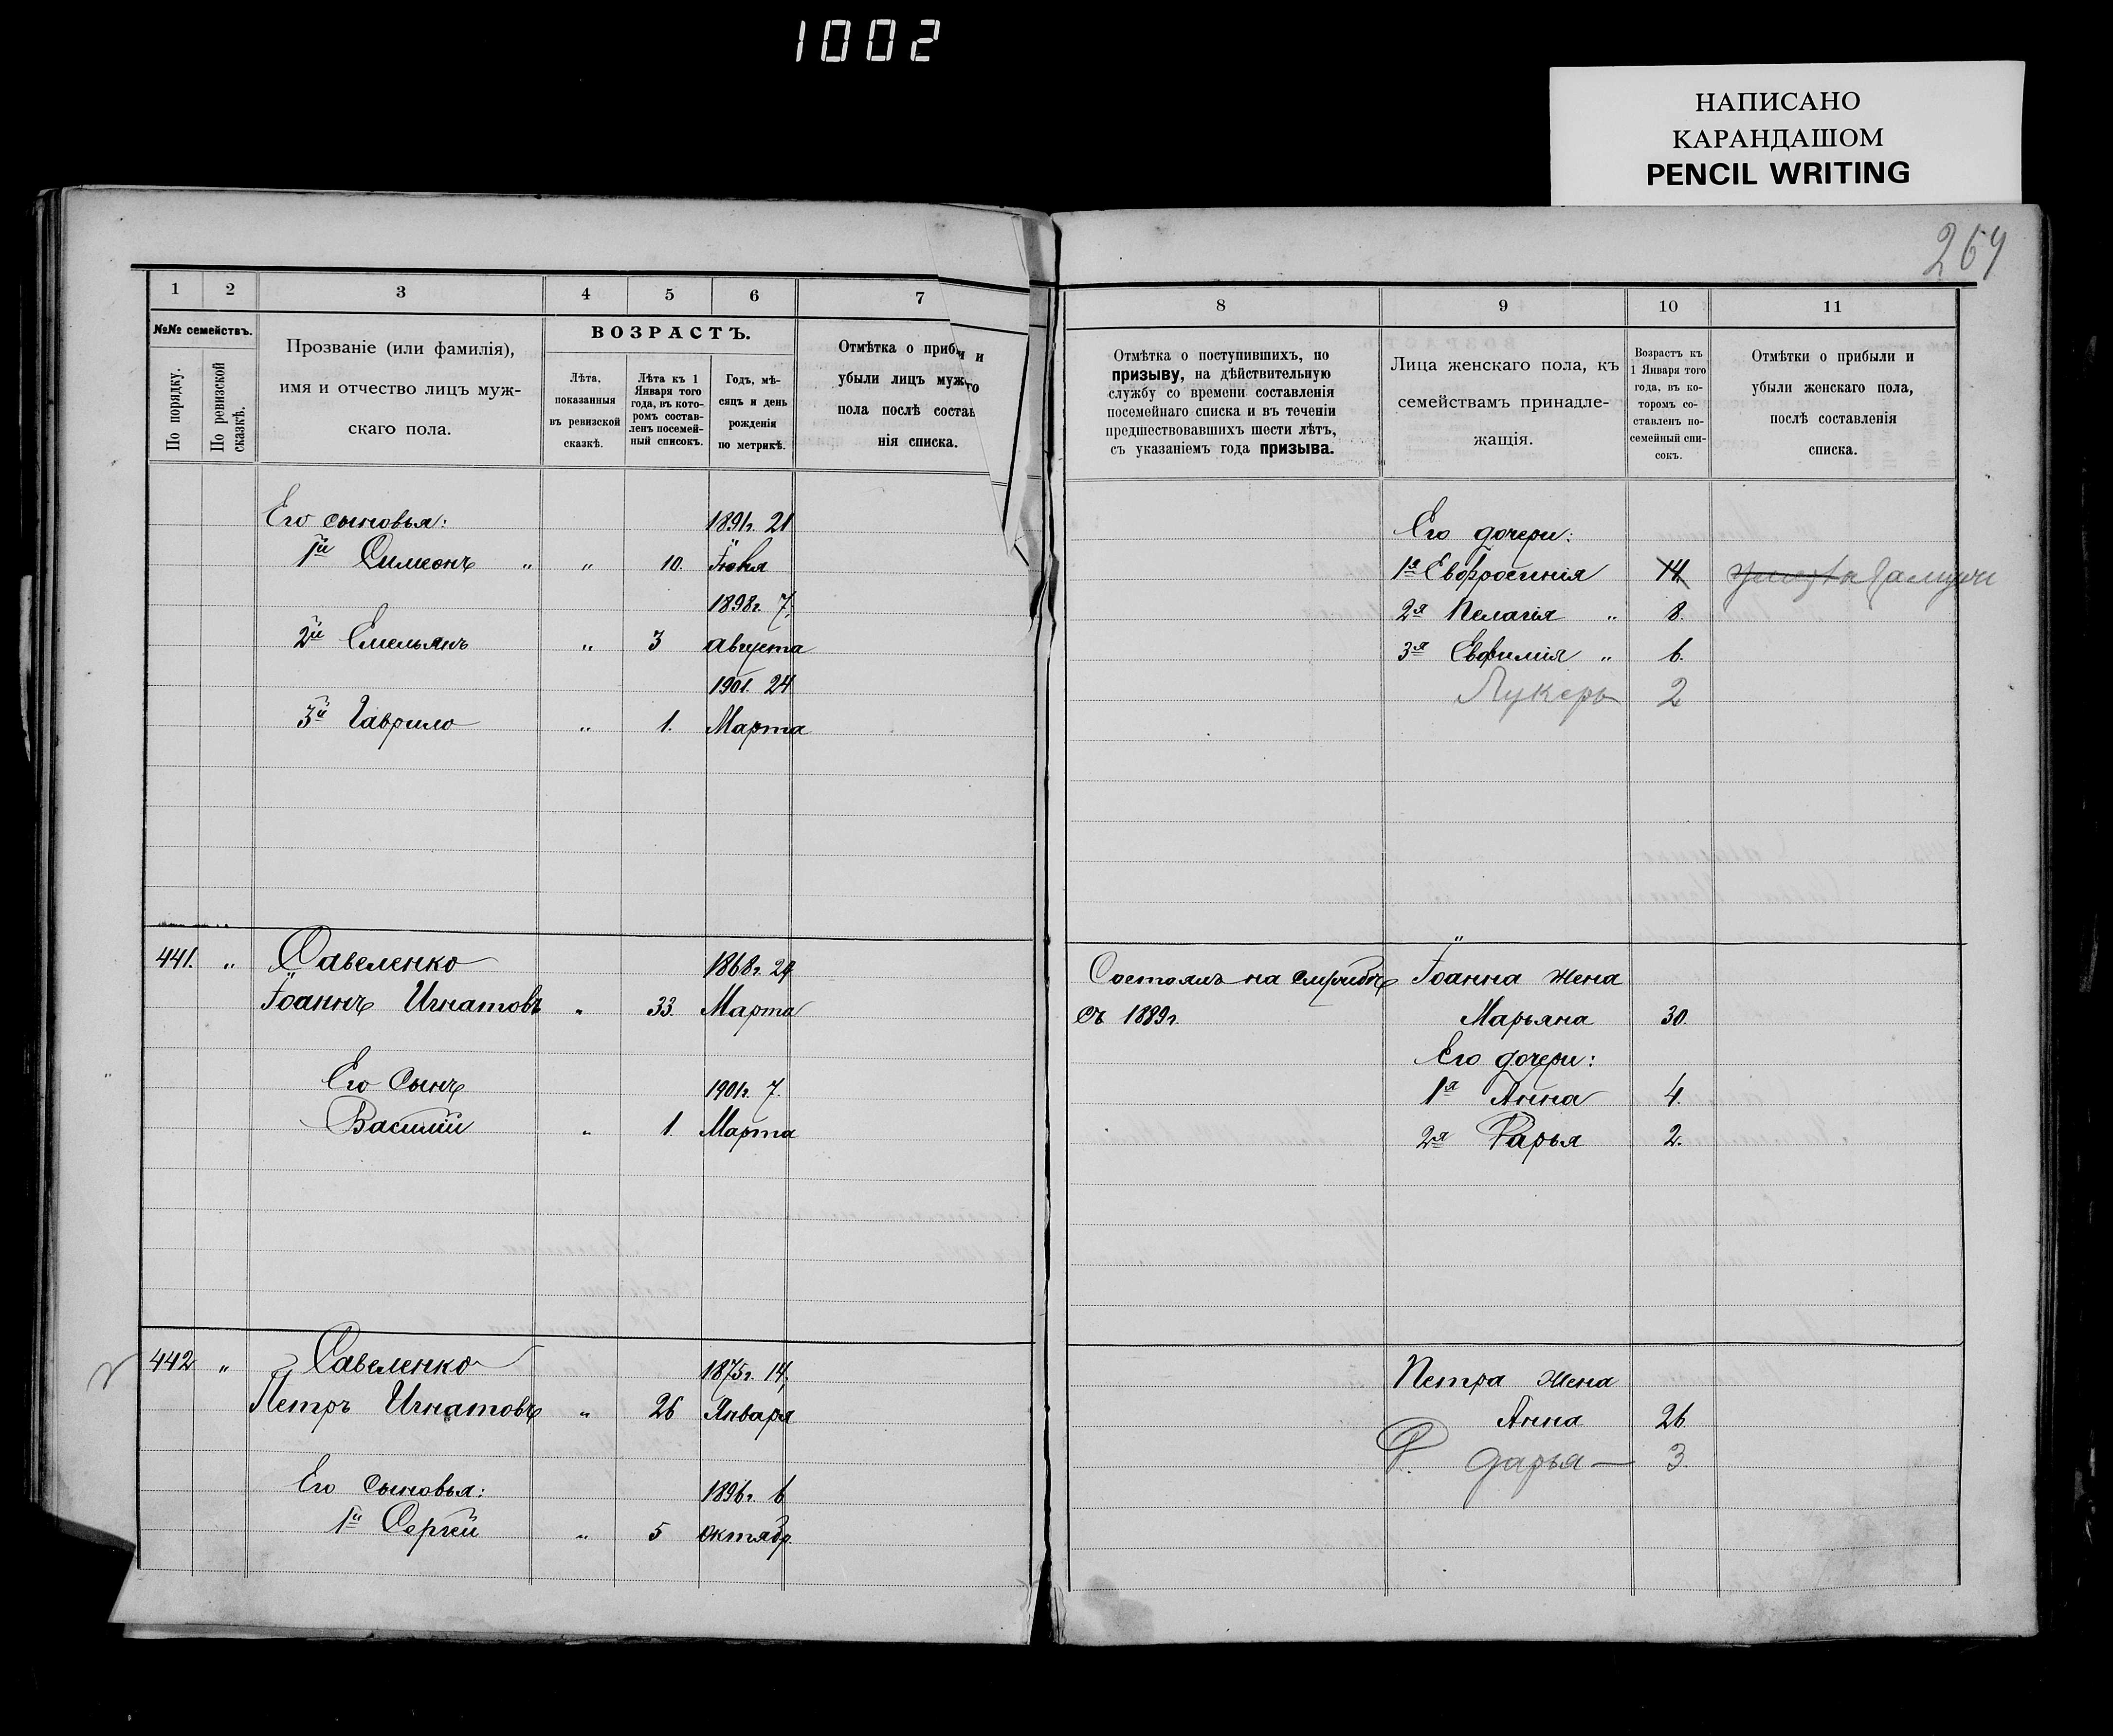 1002
НАПИСАНО
КАРАНДАШОМ
PENCIL WRITING
1 2 3 4 5 6 7
№№ семействъ.
По порядку.
По ревизской сказкѣ.
Прозваніе (или фамилія),
имя и отчество лицъ муж-
скаго пола.
ВОЗРАСТЪ.
Лѣта,
показанныя
въ ревизской
сказкѣ.
Лѣта къ 1
Января того
года, въ кото-
ромъ состав-
ленъ посемей-
ный списокъ.
Годъ, мѣ-
сяцъ и день
рожденія
по метрикѣ.
Отмѣтка о приб и
убыли лицъ муж го
пола послѣ состав
нія списка.
Его сыновья: 1891г. 21
1й Симеонъ " " 10. Іюня
1898г. 7.
2й Емельянъ " 3 августа
1901. 24
3й Гаврило " 1. Марта
441. " Савеленко 1868г. 29
Іоаннъ Игнатовъ " 33. Марта
Его Сынъ 1901г. 7.
Василій " 1. Марта
442 " Савеленко 1875г. 14,
Петръ Игнатовъ " 26 Января
Его Сыновья: 1896г. 6
1й Сергѣй " 5 октябр.
8 9 10 11
Отмѣтка о поступившихъ, по
призыву, на дѣйствительную
службу со времени составленія
посемейнаго списка и въ теченіи
предшествовавшихъ шести лѣтъ,
съ указаніемъ года призыва.
Лица женскаго пола, къ
семействамъ принадле-
жащія.
Возрастъ къ
1 Января того
года, въ ко-
торомъ со-
ставленъ по-
семейный спи-
сокъ.
Отмѣтки о прибыли и
убыли женскаго пола,
послѣ составленія
списка.
Его дочери:
1я Евфросинія 14
2я Пелагія " 8.
3я Евфимія " 6.
Лукерь 2
Состоялъ на службѣ Іоанна жена
съ 1889г. Марьяна 30.
Его дочери:
1я Анна 4.
2я Дарья 2.
Петра жена
Анна 26
дарья — 3.